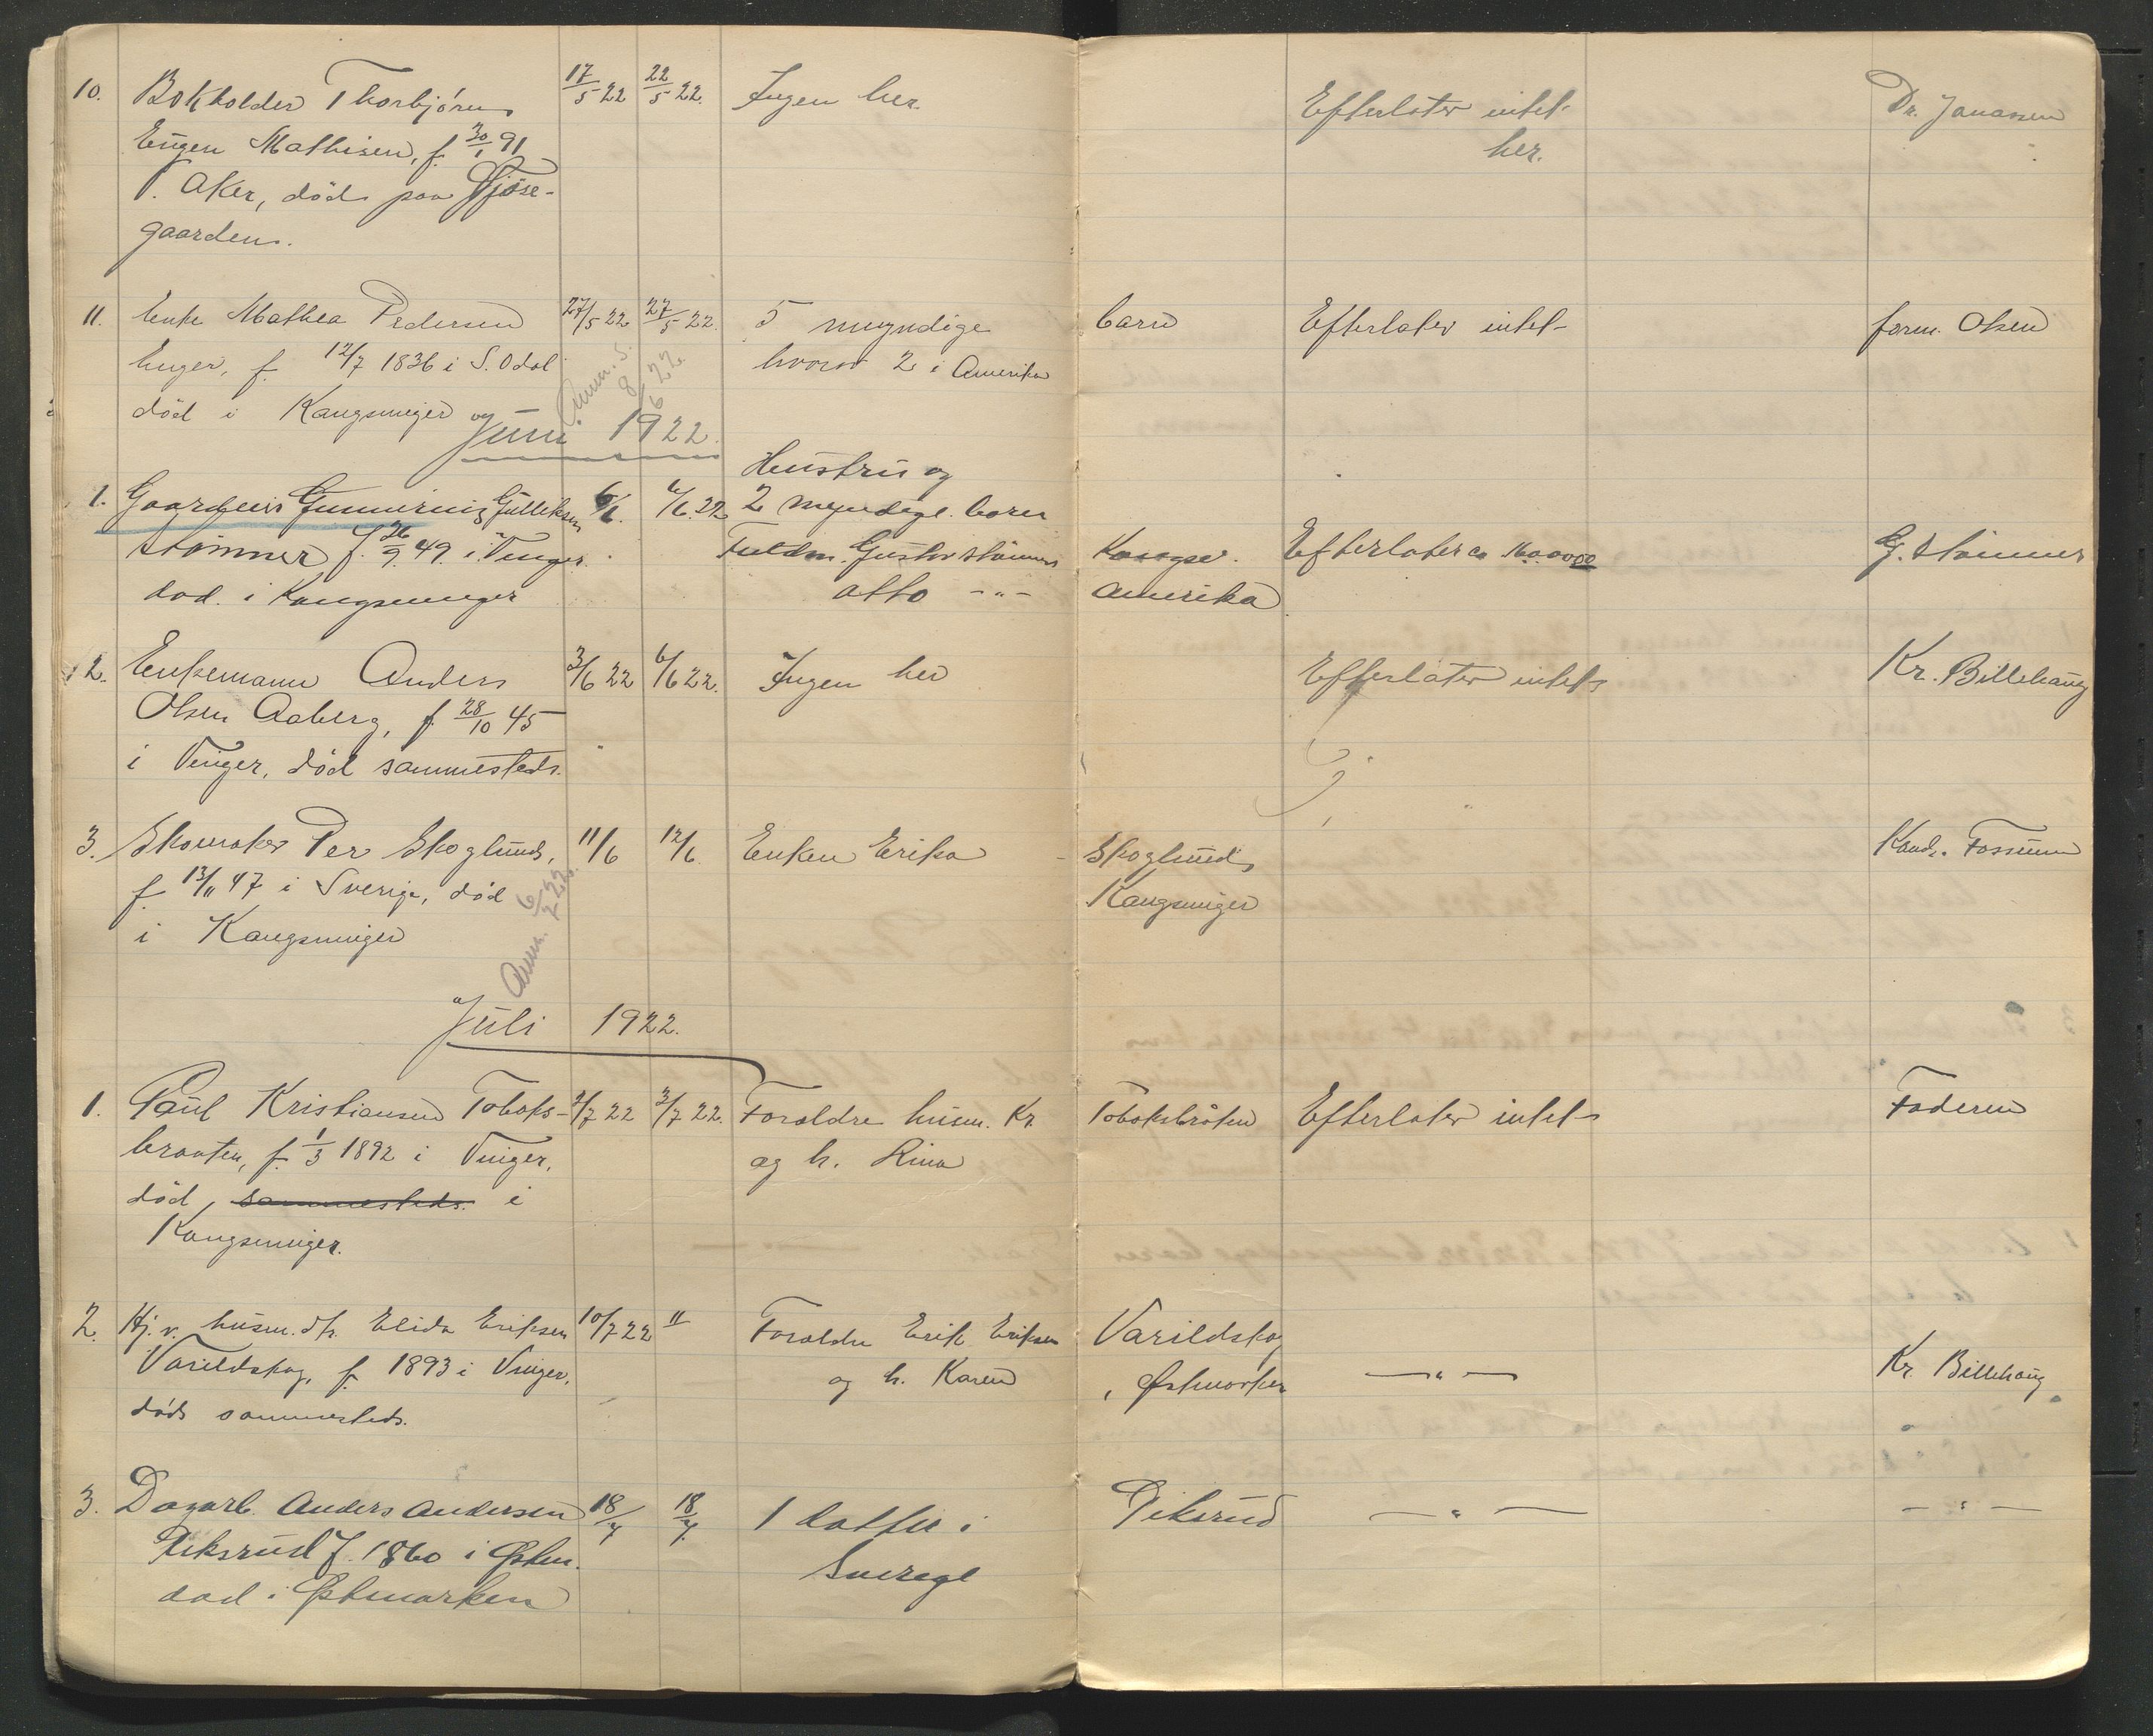 10. Bokholder Thorbjørn 17/5 22 22/5 22. Ingen her. Efterlater intet Dr. Jonassen
Eugen Mathisen, f. 30/1 91 her.
V. Aker, død paa
gaarden.
11. Enke Mathea Pedersen 27/5 22 27/5 22. 5 myndige barn Efterlater intet form. Olsen
Enger, f. 12/7 1836 i S. Odal hvorav 2 i Amerika
død i Kongsvinger Anm. s. 8/6 22
Juni 1922.
Hustru og
1. Gaardeier Gulliksen 6/6. 6/6.22 2 myndige barn
Stømner f. 26/9. 49. i Vinger. Fuldm. Gustav Stømner Kongsv. Efterlater ca 16000 00 G. Stømner
død. i Kongsvinger Otto -"- Amerika
2. Enkemann Anders 3/6 22 6/6 22. Ingen her Efterlater intet Kr. Billehaug
Olsen Aaberg, f. 28/10 45
i Vinger, død sammesteds.
3. Skomaker Per Skoglund, 11/6 12/6 Enken Erika - Skoglund, Fossum
f. 13/11 47 i Sverige, død Kongsvinger
i Kongsvinger Anm. 6/7 22.
Juli 1922.
1. Paul Kristiansen Toboks- 2/7 22 3/7 22. Foraldre husm. Kr. Toboksbråten Efterlater intet Faderen
braaten, f. 1/3 1892 i Vinger, og h. Lina
død, sammesteds. i
Kongsvinger.
2. Hj. v. husm. dtr. Elida Eriksen 10/7 22 11 Foraldre Erik Eriksen Varildskog
Varildskog, f. 1893 i Vinger, og h. Karen , Østmarken -"- Kr. Billehaug
død sammesteds.
3. Dagarb. Anders Andersen 18/7 18/7. 1 datter i Piksrud -"- -"-
Piksrud f. 1860 i Østm. Sverege
død i Østmarken